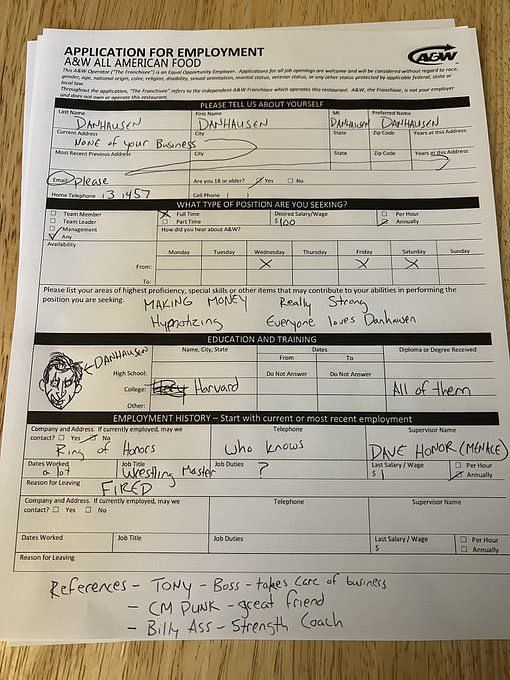 APPLICATION FOR EMPLOYMENT
A&W ALL AMERICAN FOOD
A&W
This A&W Operator ("The Franchisee") is an Equal Opportunity Employer. Applications for all job openings are welcome and will be considered without regard to race,
gender, age, national origin, color, religion, disability, sexual orientation, marital status, veteran status, or any other status protected by applicable federal, state or
local law.
Throughout the application, "The Franchisee" refers to the independent A&W Franchisee which operates this restaurant. A&W, the Franchisor, is not your employer
and does not own or operate this restaurant.
PLEASE TELL US ABOUT YOURSELF
Last Name First Name MI Preferred Name
DANHAUSEN DANHAUSEN DANHAUSEN DANHAUSEN
Current Address City State Zip Code Years at this Address
NONE of your Business
Most Recent Previous Address City State Zip Code Years at this Address
Email please Are you 18 or older? Yes No
Home Telephone Cell Phone ( )
WHAT TYPE OF POSITION ARE YOU SEEKING?
Team Member Full Time Desired Salary/Wage Per Hour
Team Leader Part Time $ 100 Annually
Management How did you hear about A&W?
Any
Availability
Monday Tuesday Wednesday Thursday Friday Saturday Sunday
From: X X X
To:
Please list your areas of highest proficiency, special skills or other items that may contribute to your abilities in performing the
position you are seeking.
MAKING MONEY Really Strong
Hypnotizing Everyone loves Danhausen
EDUCATION AND TRAINING
DANHAUSEN
Name, City, State Dates Diploma or Degree Received
From To
High School: Do Not Answer Do Not Answer
College: Harvard All of them
Other:
EMPLOYMENT HISTORY – Start with current or most recent employment
Company and Address. If currently employed, may we Telephone Supervisor Name
contact? Yes No
Ring of Honors who knows DAVE HONOR (MENACE)
Dates Worked Job Title Job Duties Last Salary / Wage Per Hour
a lot Wrestling Master ? $ 1 Annually
Reason for Leaving
FIRED
Company and Address. If currently employed, may we Telephone Supervisor Name
contact? Yes No
Dates Worked Job Title Job Duties Last Salary / Wage Per Hour
$ Annually
Reason for Leaving
References - TONY - Boss - takes care of business
- CM PUNK - great friend
- Billy Ass - Strength Coach